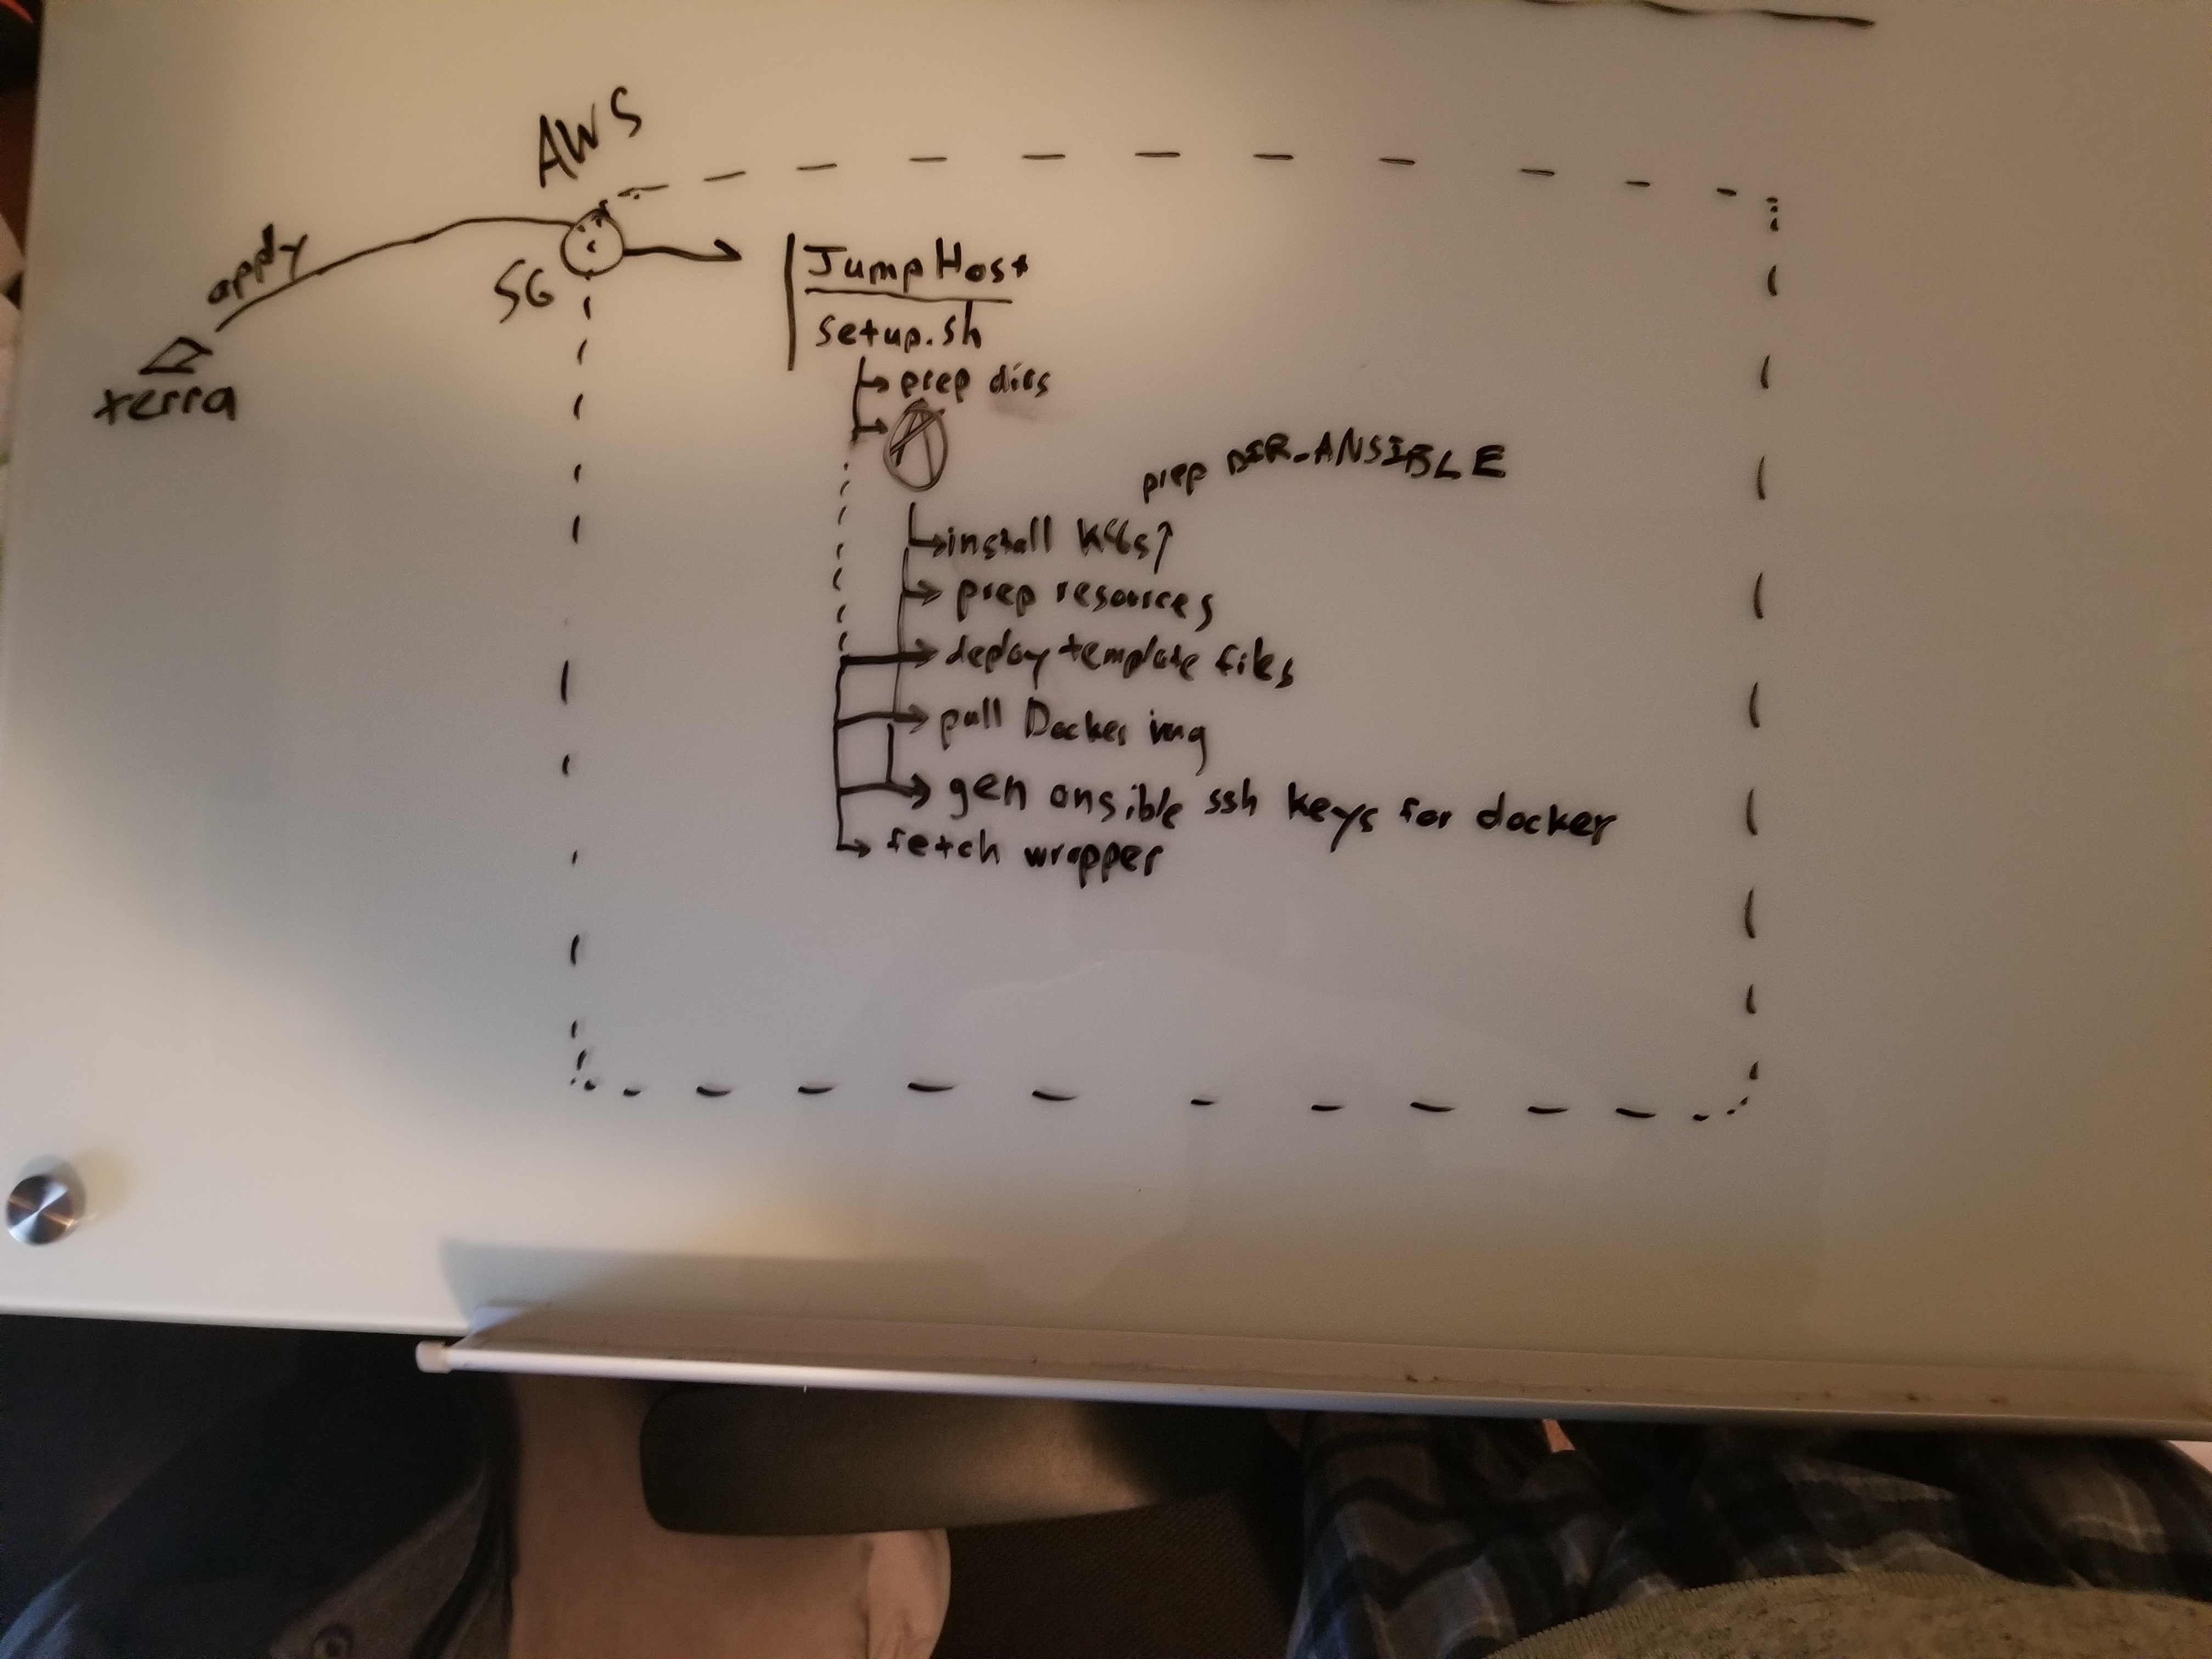 AWS
apply
SG
terra
JumpHost
setup.sh
prep dirs
A
prep DIR_ANSIBLE
install K8s
prep resources
deploy template files
pull Docker img
gen ansible ssh keys for docker
fetch wrapper